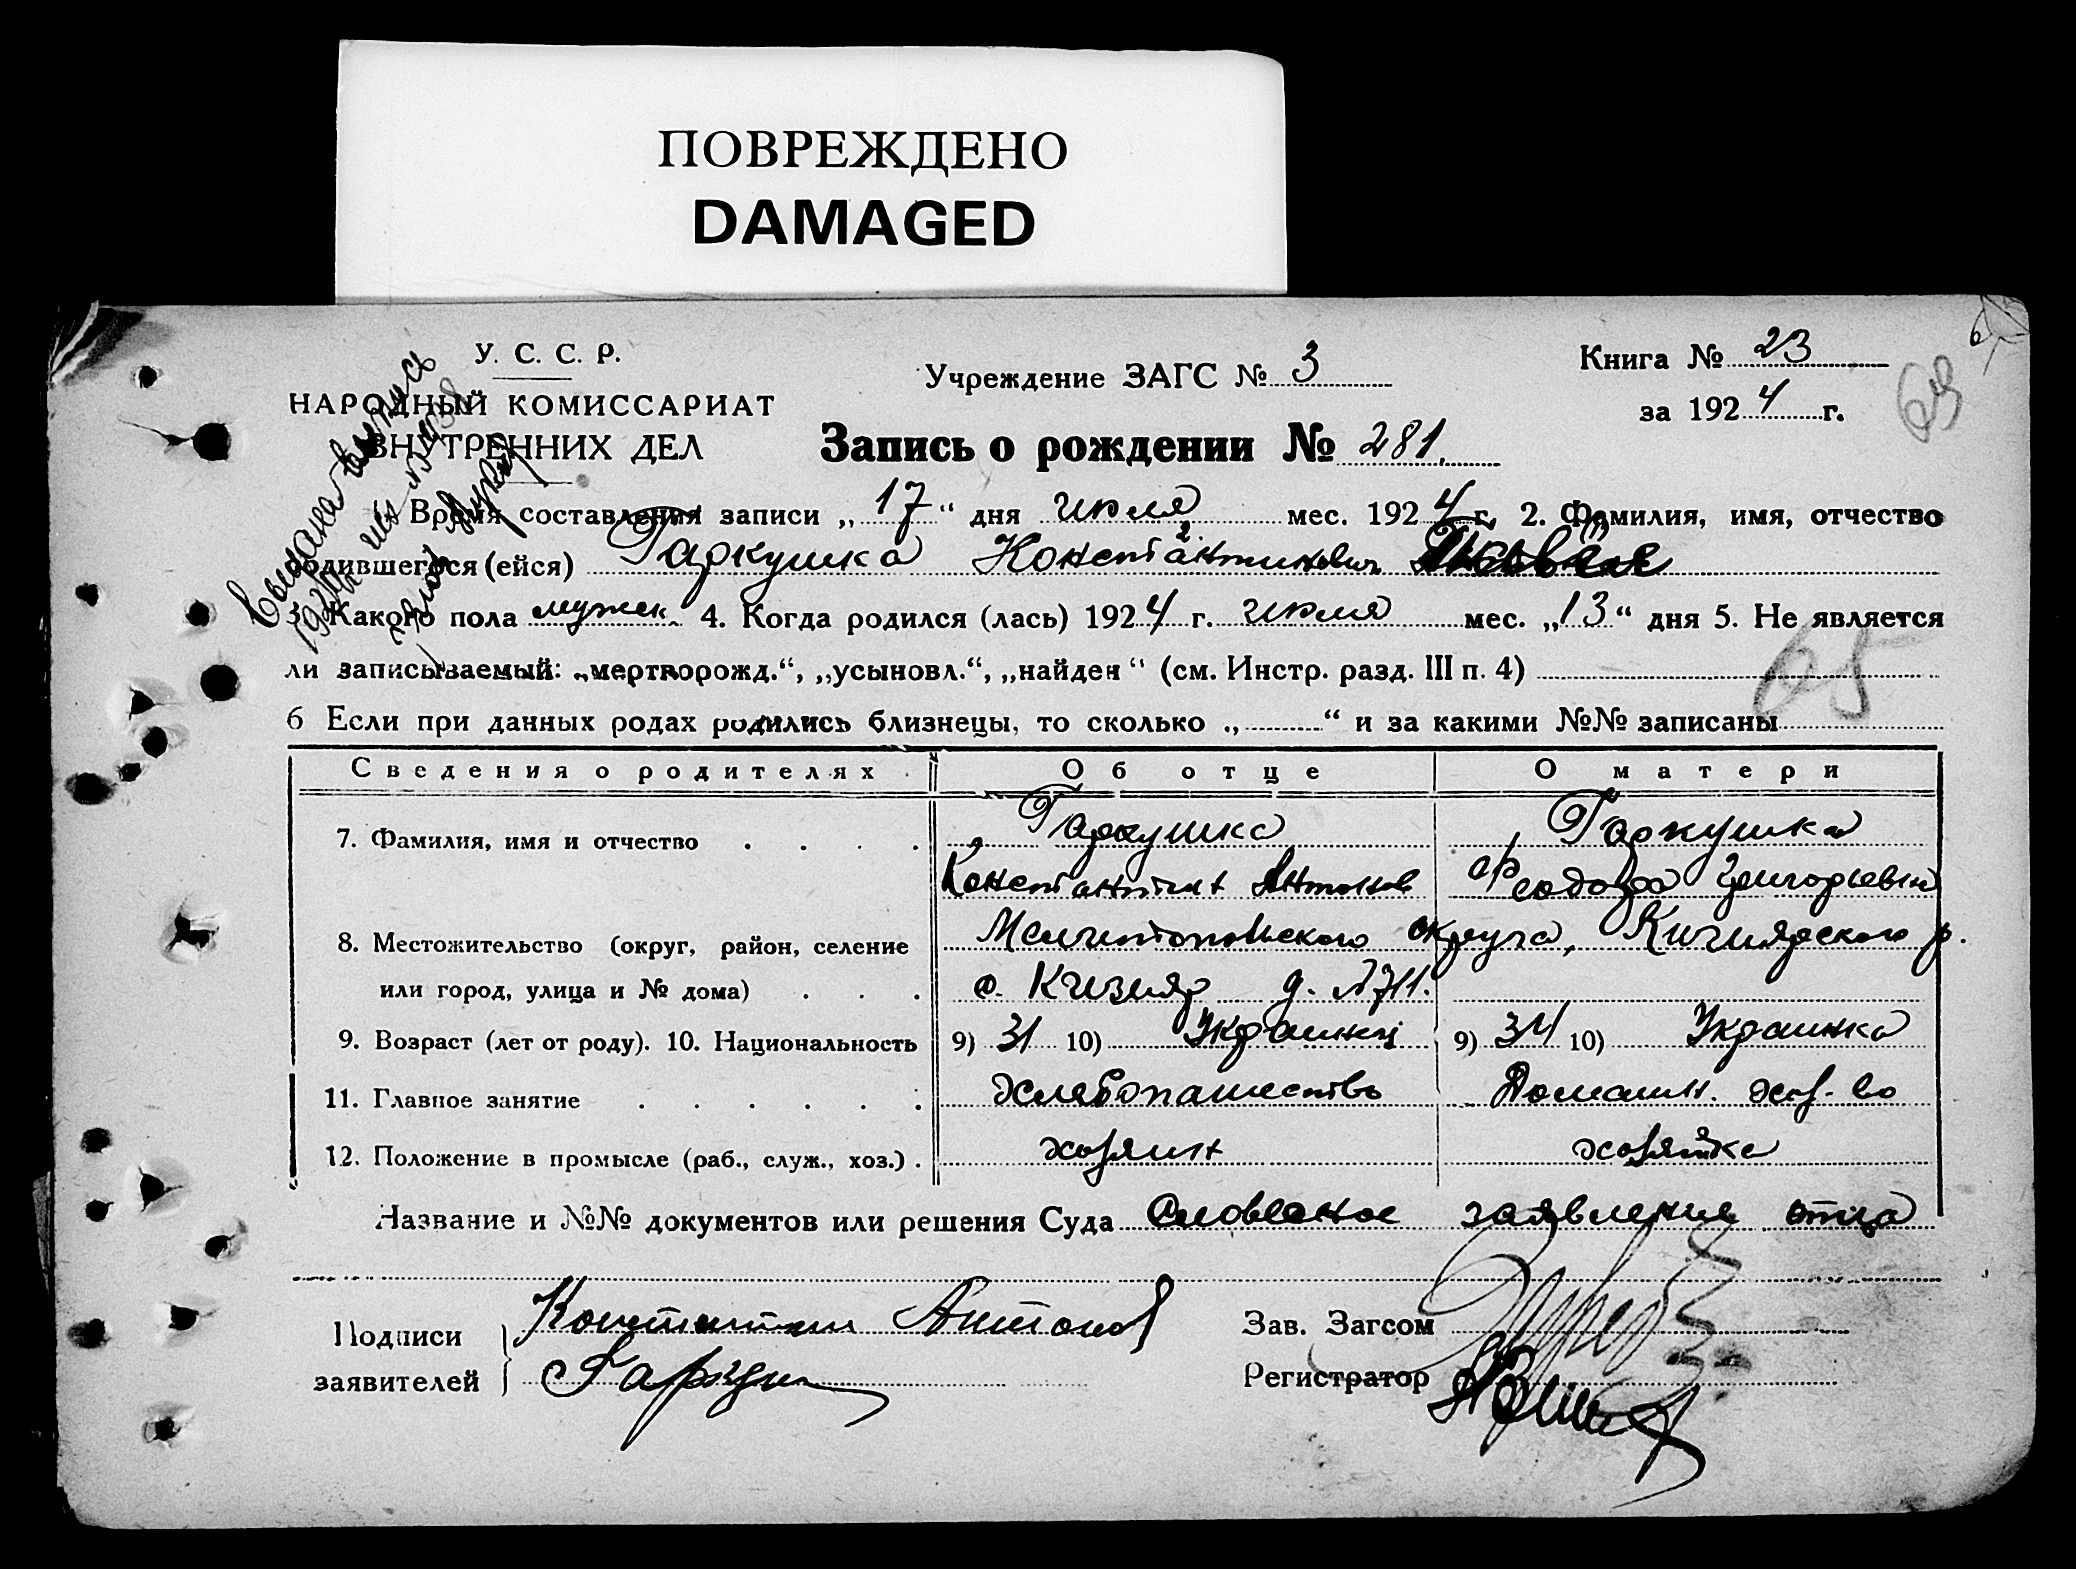 ПОВРЕЖДЕНО
DAMAGED
У. С. С. Р.
НАРОДНЫЙ КОМИССАРИАТ
ВНУТРЕННИХ ДЕЛ
Учреждение ЗАГС № 3
Книга № 23
за 1924 г.
69
Запись о рождении № 281.
Выдана выпись
Время составления записи „17“ дня июля мес. 1924 г. 2. Фамилия, имя, отчество
родившегося (ейся) Гаркушка Константинович
3. Какого пола мужск. 4. Когда родился (лась) 1924 г. июля мес. „13“ дня 5. Не является
ли записываемый: „мертворожд.“, „усыновл.“, „найден“ (см. Инстр. разд. III п. 4)
65
6 Если при данных родах родились близнецы, то сколько „ “ и за какими №№ записаны
Сведения о родителях Об отце О матери
7. Фамилия, имя и отчество Гаркушка Гаркушка
Константин Антонов Феодора Григорьевн
8. Местожительство (округ, район, селение Мелитопольского округа, Кизиярского р.
или город, улица и № дома) с. Кизияр д. № 711.
9. Возраст (лет от роду). 10. Национальность 9) 31 10) Украинец 9) 34 10) Украинка
11. Главное занятие Хлебопашество Домашн. хоз-во
12. Положение в промысле (раб., служ., хоз.) хозяин хозяйка
Название и №№ документов или решения Суда Словесное заявление отца
Подписи заявителей Константин Антонов
Гаркуш
Зав. Загсом
Регистратор